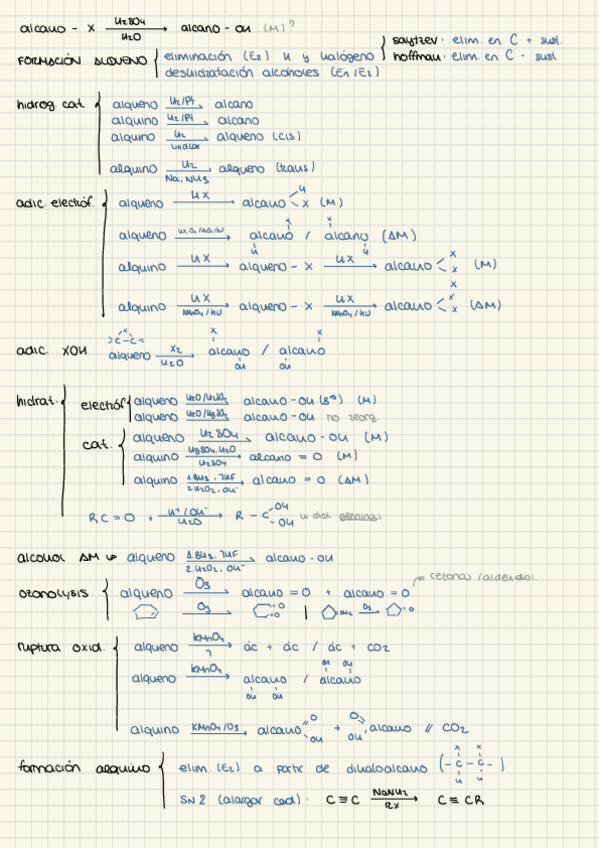 alcano - X  H₂SO₄ / H₂O →  alcano - OH (M)?
FORMACIÓN ALQUENO { eliminación (E₂) H y halógeno } saytzev: elim. en C + sust.
hoffman: elim. en C - sust
deshidratación alcoholes (E₁/E₂)
hidrog. cat. { alqueno H₂/Pt → alcano
alquino H₂/Pt → alcano
alquino H₂ / Lindlar → alqueno (cis)
alquino H₂ / Na, NH₃ → alqueno (trans)
adic. electróf. { alqueno HX → alcano < H X (M)
alqueno → alcano X H / alcano X H (AM)
alquino HX → alqueno - X HX → alcano < X X (M)
alquino HX / KMnO₄/hν → alqueno - X HX / KMnO₄/hν → alcano < X X (AM)
adic. XOH >C-C< X alqueno X₂ / H₂O → alcano X OH / alcano X OH
hidrat. { electróf { alqueno H₂O/H₂SO₄ → alcano - OH (M)
alqueno H₂O/HgSO₄ → alcano - OH no reorg.
cat. { alqueno H₂SO₄ → alcano - OH (M)
alquino HgSO₄, H₂O / H₂SO₄ → alcano = O (M)
alquino 1. BH₃, THF / 2. H₂O₂, OH⁻ → alcano = O (AM)
RC=O + H⁺/OH⁻ / H₂O → R - C OH OH ↳ diol geminal
alcohol AM ↳ alqueno 1. BH₃, THF / 2. H₂O₂, OH⁻ → alcano - OH
ozonolysis { alqueno O₃ → alcano = O + alcano = O → cetonas / aldehidos.
O₃ → =O =O | =CH₂ O₃ → =O
ruptura oxid. { alqueno KMnO₄ → ác + ác / ác + CO₂
alqueno KMnO₄ → alcano OH OH / alcano OH OH
alquino KMnO₄/O₃ → alcano O OH + O OH alcano // CO₂
formación alquino { elim. (E₂) a partir de dihaloalcano (-C-C-) X X H H
SN2 (alargar cad): C≡C NaNH₂ / RX → C≡CR